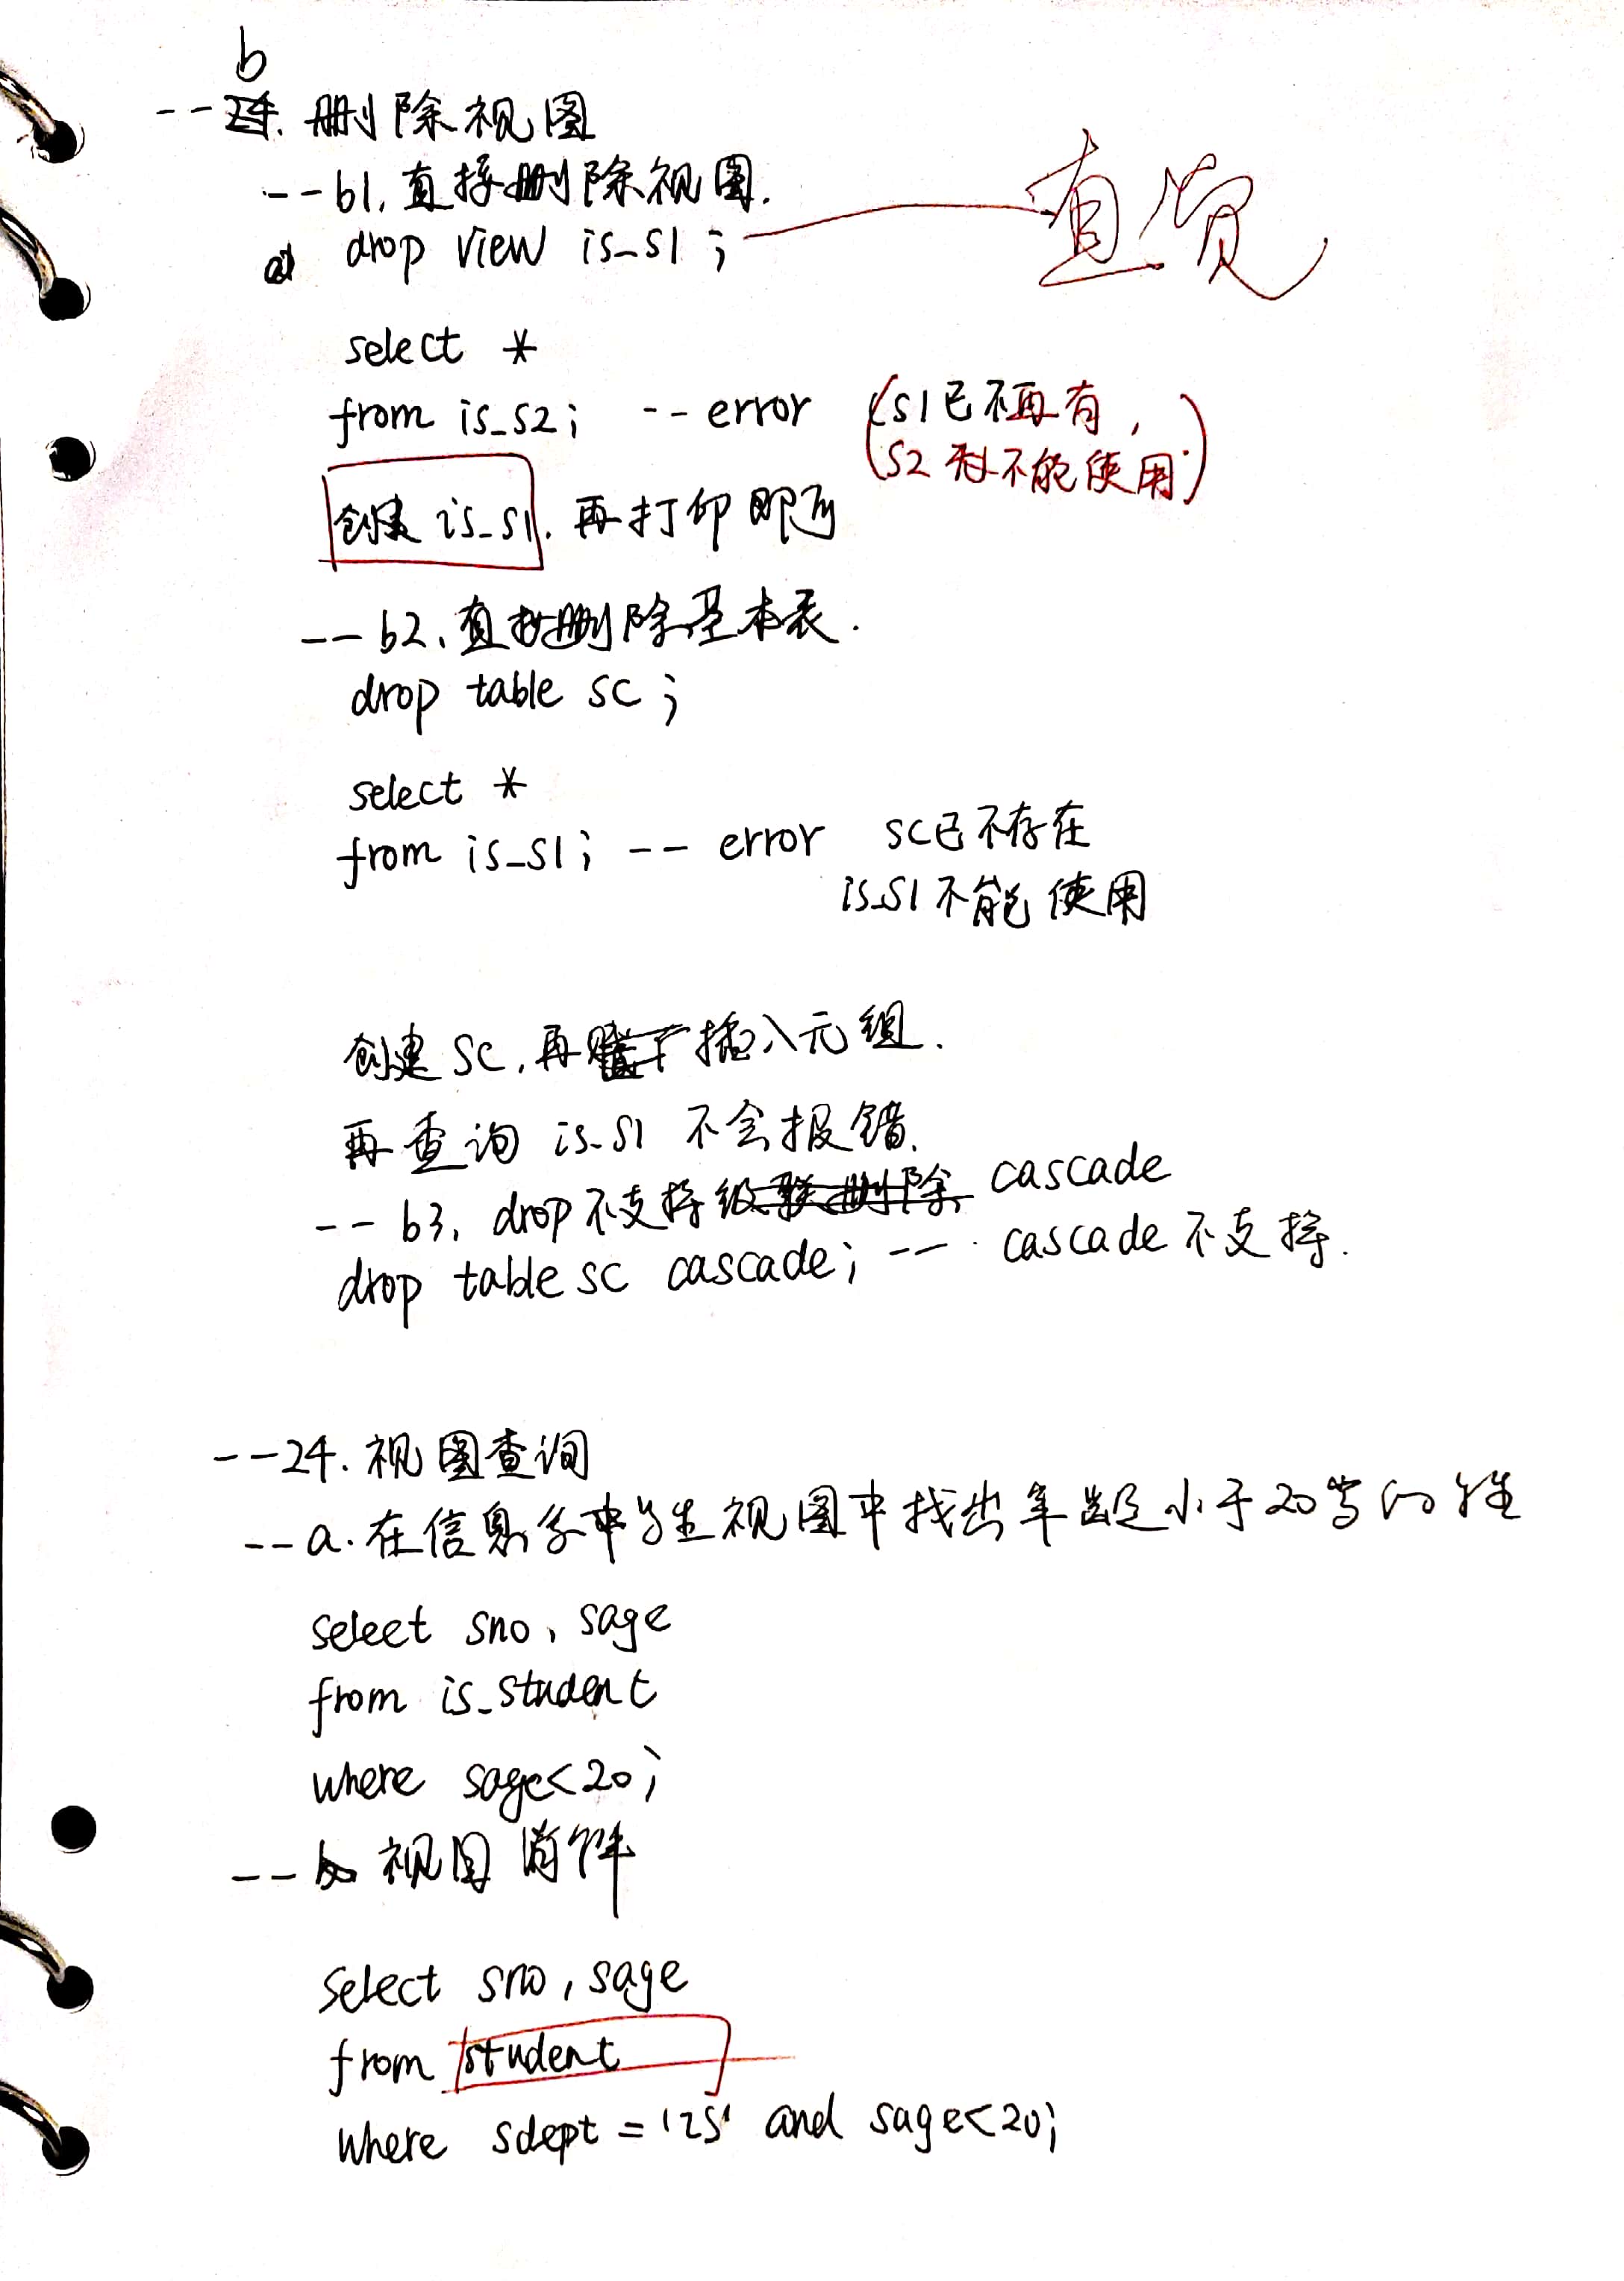 b
--24. 删除视图
--b1. 直接删除视图.
drop view is_s1;
select *
from is_s2; --error (s1已不再有,
s2 也不能使用.)
创建 is_s1. 再打印即可
--b2. 直接删除基本表.
drop table sc;
select *
from is_s1; -- error sc已不存在
is_s1不能使用
创建 sc, 再插入元组.
再查询 is_s1 不会报错.
-- b3. drop不支持级联删除 cascade
drop table sc cascade; -- cascade 不支持.
--24. 视图查询
--a. 在信息系中学生视图中找出年龄小于20岁的学生
select sno, sage
from is_student
where sage<20;
--b 视图消解
select sno, sage
from student
where sdept = 'IS' and sage<20;